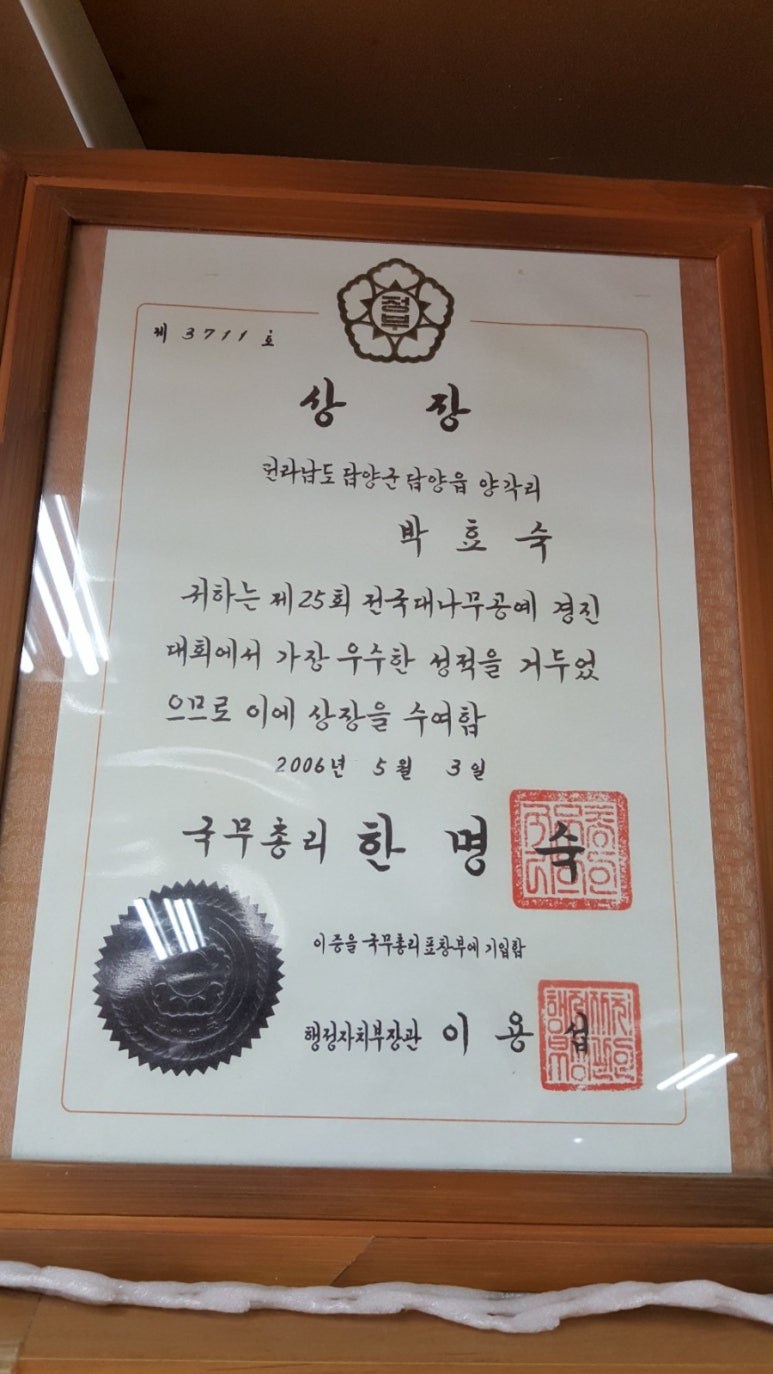 정부
제 3711 호
상 장
전라남도 담양군 담양읍 양각리
박 효 숙
귀하는 제25회 전국대나무공예 경진
대회에서 가장 우수한 성적을 거두었
으므로 이에 상장을 수여함
2006년 5월 3일
국무총리 한 명 숙
이 증을 국무총리 표창부에 기입함
행정자치부장관 이 용 섭